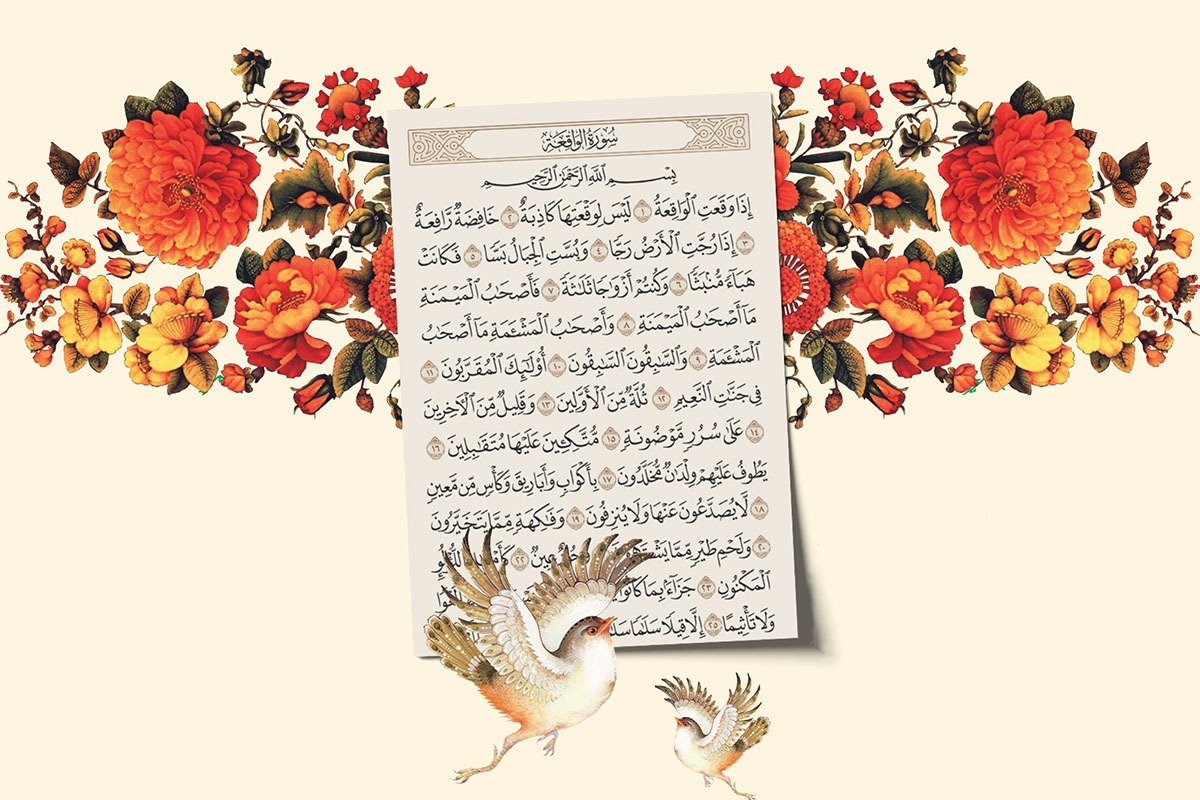 سُورَةُ الوَاقِعَةِ
بِسْمِ ٱللَّهِ ٱلرَّحْمَٰنِ ٱلرَّحِيمِ
إِذَا وَقَعَتِ ٱلْوَاقِعَةُ ١ لَيْسَ لِوَقْعَتِهَا كَاذِبَةٌ ٢ خَافِضَةٌ رَّافِعَةٌ
٣ إِذَا رُجَّتِ ٱلْأَرْضُ رَجًّا ٤ وَبُسَّتِ ٱلْجِبَالُ بَسًّا ٥ فَكَانَتْ
هَبَآءً مُّنۢبَثًّا ٦ وَكُنتُمْ أَزْوَٰجًا ثَلَٰثَةً ٧ فَأَصْحَٰبُ ٱلْمَيْمَنَةِ
مَآ أَصْحَٰبُ ٱلْمَيْمَنَةِ ٨ وَأَصْحَٰبُ ٱلْمَشْـَٔمَةِ مَآ أَصْحَٰبُ
ٱلْمَشْـَٔمَةِ ٩ وَٱلسَّٰبِقُونَ ٱلسَّٰبِقُونَ ١٠ أُو۟لَٰٓئِكَ ٱلْمُقَرَّبُونَ ١١
فِى جَنَّٰتِ ٱلنَّعِيمِ ١٢ ثُلَّةٌ مِّنَ ٱلْأَوَّلِينَ ١٣ وَقَلِيلٌ مِّنَ ٱلْـَٔاخِرِينَ
١٤ عَلَىٰ سُرُرٍ مَّوْضُونَةٍ ١٥ مُّتَّكِـِٔينَ عَلَيْهَا مُتَقَٰبِلِينَ ١٦
يَطُوفُ عَلَيْهِمْ وِلْدَٰنٌ مُّخَلَّدُونَ ١٧ بِأَكْوَابٍ وَأَبَارِيقَ وَكَأْسٍ مِّن مَّعِينٍ
١٨ لَّا يُصَدَّعُونَ عَنْهَا وَلَا يُنزِفُونَ ١٩ وَفَٰكِهَةٍ مِّمَّا يَتَخَيَّرُونَ
٢٠ وَلَحْمِ طَيْرٍ مِّمَّا يَشْتَهُونَ وَحُورٌ عِينٌ ٢٢ كَأَمْثَٰلِ ٱللُّؤْلُؤِ
ٱلْمَكْنُونِ ٢٣ جَزَآءًۢ بِمَا كَانُوا۟
وَلَا تَأْثِيمًا ٢٥ إِلَّا قِيلًا سَلَٰمًا